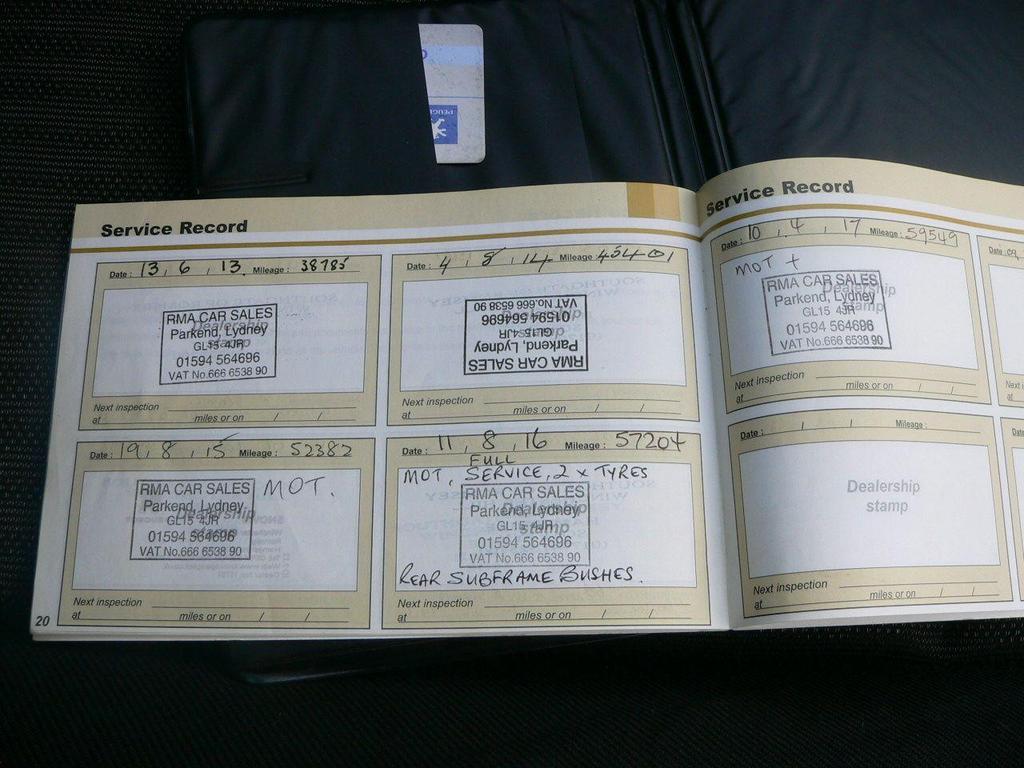 PEUG
Service Record
Date: 13, 6, 13. Mileage: 38785
RMA CAR SALES
Parkend, Lydney
GL15 4JR
01594 564696
VAT No.666 6538 90
Dealership
stamp
Next inspection
at miles or on / /
Date: 4, 8, 14 Mileage 45401
RMA CAR SALES
Parkend, Lydney
GL15 4JR
01594 564696
VAT No.666 6538 90
Next inspection
at miles or on / /
Date: 19, 8, 15 Mileage: 52382
RMA CAR SALES MOT.
Parkend, Lydney
GL15 4JR
01594 564696
VAT No.666 6538 90
Dealership
stamp
Next inspection
at miles or on / /
Date: 11, 8, 16 Mileage: 57204
FULL
MOT, SERVICE, 2 x TYRES
RMA CAR SALES
Parkend, Lydney
GL15 4JR
01594 564696
VAT No.666 6538 90
Dealership
stamp
REAR SUBFRAME BUSHES.
Next inspection
at miles or on / /
20
Service Record
Date: 10, 4, 17 Mileage: 59549
MOT +
RMA CAR SALES
Parkend, Lydney
GL15 4JR
01594 564696
VAT No.666 6538 90
Dealership
stamp
Next inspection
at miles or on / /
Date: / / Mileage:
Dealership
stamp
Next inspection
at miles or on / /
Date: